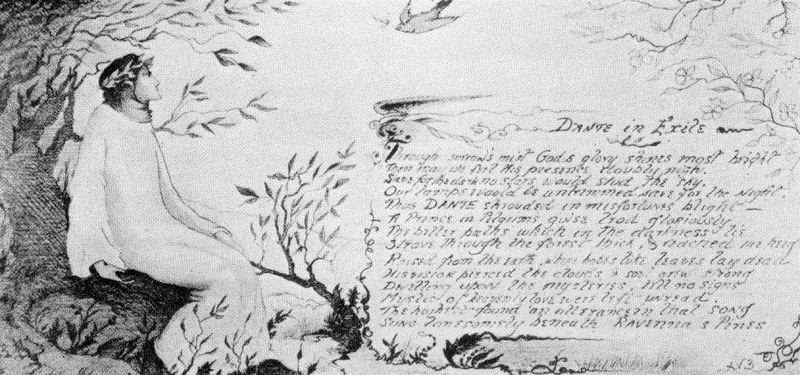 DANTE in Exile
Through sorrow's mist God's glory shines most bright
Then may we feel His presence doubly nigh.
Save for the dark no stars would stud the sky.
Our lamps would be untrimmed save for the Night
Thus DANTE shrouded in misfortune's blight —
A Prince in Pilgrims guise trod gloriously
The bitter paths which in the darkness lie
Strove through the forest thick, & reached the height
Raised from the earth, where hopes like leaves lay dead
His vision pierced the clouds & soul grew strong
Dwelling upon the mysteries, till no signs
Mystic of heavenly love were left unread.
The found an utterance in that song
Sung lonesomely beneath Ravenna's Pines